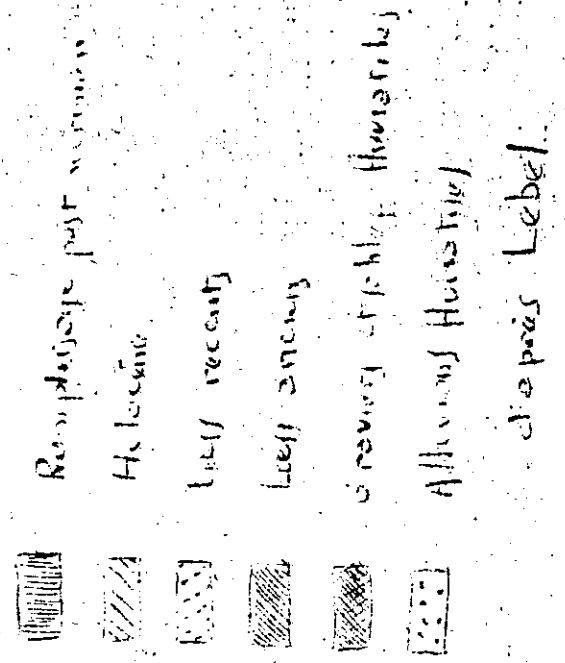 Remplissage post wurmien
Holocène
Lœss récents
Lœss anciens
Graviers et sables fluviatiles
Alluvions fluviatiles
d'après Lebel.